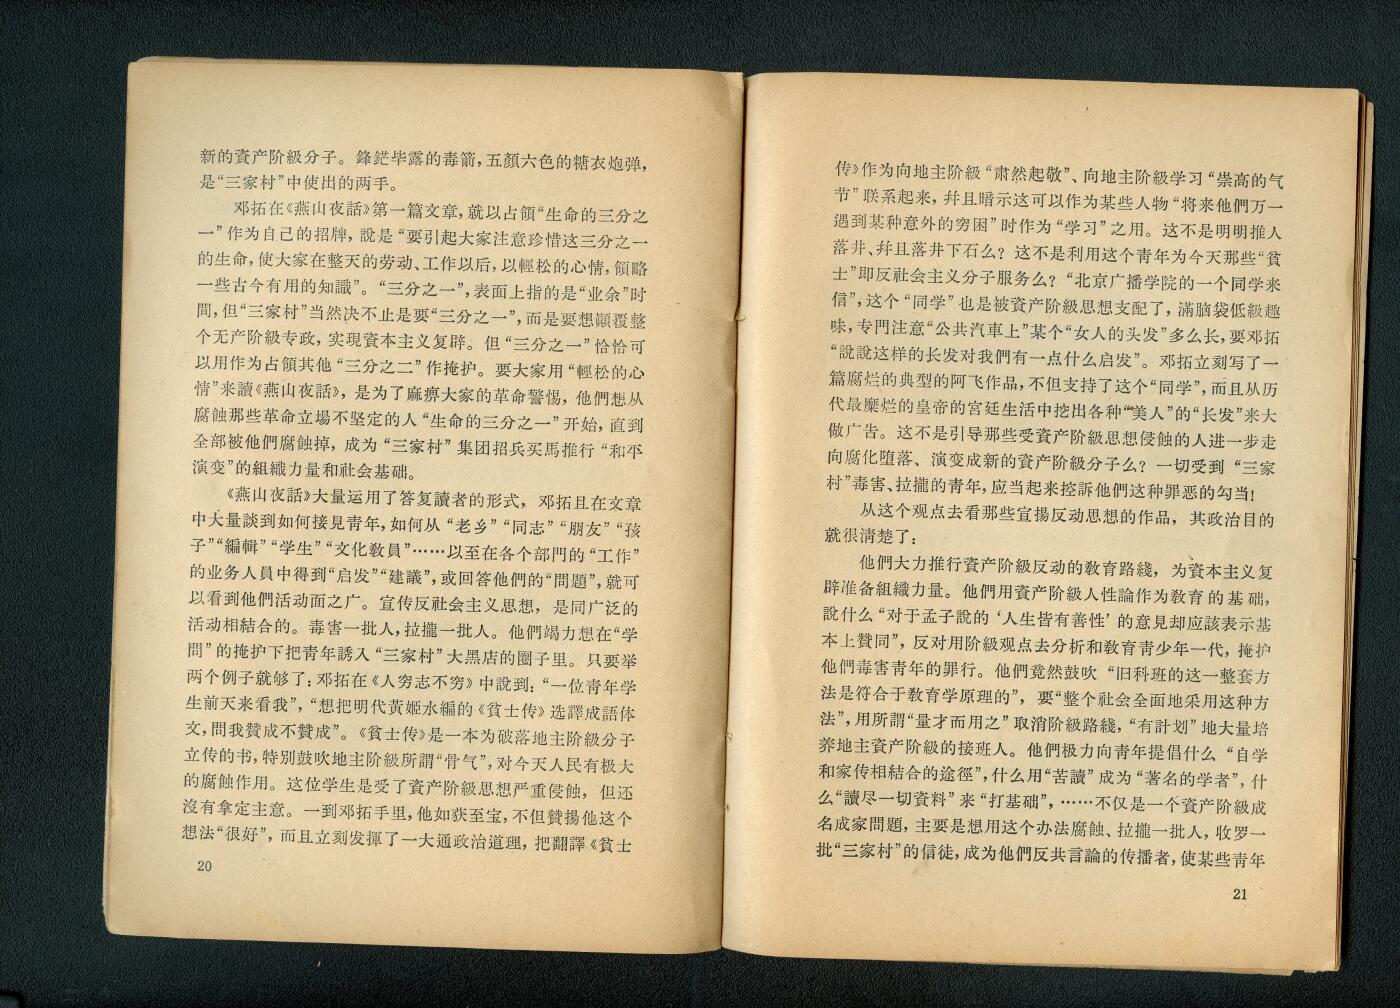 新的資产阶級分子。鋒鋩毕露的毒箭，五顏六色的糖衣炮弹，
是“三家村”中使出的两手。
邓拓在《燕山夜話》第一篇文章，就以占領“生命的三分之
一”作为自己的招牌，說是“要引起大家注意珍惜这三分之一
的生命，使大家在整天的劳动、工作以后，以輕松的心情，領略
一些古今有用的知識”。“三分之一”，表面上指的是“业余”时
間，但“三家村”当然决不止是要“三分之一”，而是要想顚覆整
个无产阶級专政，实現資本主义复辟。但“三分之一”恰恰可
以用作为占領其他“三分之二”作掩护。要大家用“輕松的心
情”来讀《燕山夜話》，是为了麻痹大家的革命警惕，他們想从
腐蝕那些革命立場不坚定的人“生命的三分之一”开始，直到
全部被他們腐蝕掉，成为“三家村”集团招兵买馬推行“和平
演变”的組織力量和社会基础。
《燕山夜話》大量运用了答复讀者的形式，邓拓且在文章
中大量談到如何接見青年，如何从“老乡”“同志”“朋友”“孩
子”“編輯”“学生”“文化教員”……以至在各个部門的“工作”
的业务人員中得到“启发”“建議”，或回答他們的“問題”，就可
以看到他們活动面之广。宣传反社会主义思想，是同广泛的
活动相結合的。毒害一批人，拉攏一批人。他們竭力想在“学
問”的掩护下把青年誘入“三家村”大黑店的圈子里。只要举
两个例子就够了：邓拓在《人穷志不穷》中說到：“一位青年学
生前天来看我”，“想把明代黃姬水編的《貧士传》选譯成語体
文，問我贊成不贊成”。《貧士传》是一本为破落地主阶級分子
立传的书，特別鼓吹地主阶級所謂“骨气”，对今天人民有极大
的腐蝕作用。这位学生是受了資产阶級思想严重侵蝕，但还
沒有拿定主意。一到邓拓手里，他如获至宝，不但贊揚他这个
想法“很好”，而且立刻发揮了一大通政治道理，把翻譯《貧士
20
传》作为向地主阶級“肃然起敬”、向地主阶級学习“崇高的气
节”联系起来，幷且暗示这可以作为某些人物“将来他們万一
遇到某种意外的穷困”时作为“学习”之用。这不是明明推人
落井、幷且落井下石么？这不是利用这个青年为今天那些“貧
士”即反社会主义分子服务么？“北京广播学院的一个同学来
信”，这个“同学”也是被資产阶級思想支配了，滿脑袋低級趣
味，专門注意“公共汽車上”某个“女人的头发”多么长，要邓拓
“說說这样的长发对我們有一点什么启发”。邓拓立刻写了一
篇腐烂的典型的阿飞作品，不但支持了这个“同学”，而且从历
代最糜烂的皇帝的宮廷生活中挖出各种“美人”的“长发”来大
做广告。这不是引导那些受資产阶級思想侵蝕的人进一步走
向腐化堕落、演变成新的資产阶級分子么？一切受到“三家
村”毒害、拉攏的青年，应当起来控訴他們这种罪恶的勾当！
从这个观点去看那些宣揚反动思想的作品，其政治目的
就很清楚了：
他們大力推行資产阶級反动的教育路綫，为資本主义复
辟准备組織力量。他們用資产阶級人性論作为教育的基础，
說什么“对于孟子說的‘人生皆有善性’的意見却应該表示基
本上贊同”，反对用阶級观点去分析和教育青少年一代，掩护
他們毒害青年的罪行。他們竟然鼓吹“旧科班的这一整套方
法是符合于教育学原理的”，要“整个社会全面地采用这种方
法”，用所謂“量才而用之”取消阶級路綫，“有計划”地大量培
养地主資产阶級的接班人。他們极力向青年提倡什么“自学
和家传相結合的途徑”，什么用“苦讀”成为“著名的学者”，什
么“讀尽一切資料”来“打基础”，……不仅是一个資产阶級成
名成家問題，主要是想用这个办法腐蝕、拉攏一批人，收罗一
批“三家村”的信徒，成为他們反共言論的传播者，使某些青年
21